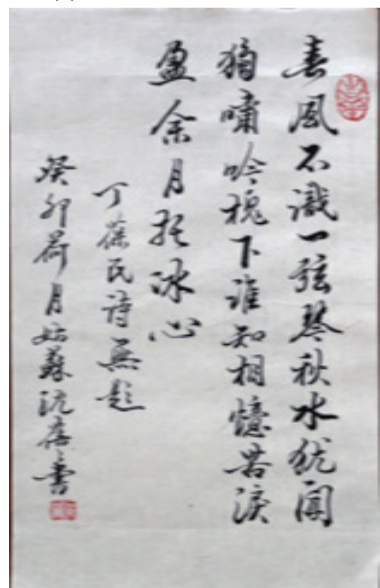 春风不識一弦琴秋水犹闻
猶嘯吟槐下誰知相憶苦淚
盈余月托冰心
丁葆民詩無題
癸卯荷月姑蘇沈 書